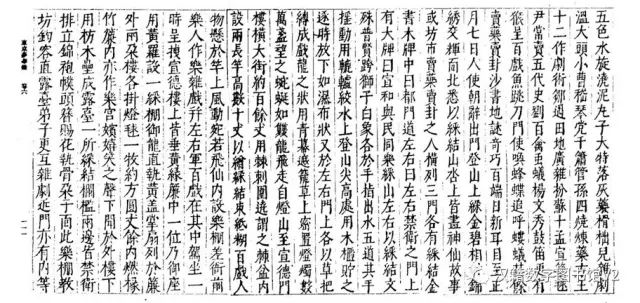 五色水旋燒泥丸子大特落灰藥榾柮兒雜劇
溫大頭小曹嵇琴党千簫管孫四燒煉藥方王
十二作劇術鄒遇田地廣雜扮蘇十孟宣築毬
尹常賣五代史劉百禽蟲蟻楊文秀鼓笛更有
猴呈百戲魚跳刀門使喚蜂蝶追呼螻蟻其餘
賣藥賣卦沙書地謎奇巧百端日新耳目至正
月七日人使朝辭出門燈山上綵金碧相射錦
繡交輝面北悉以綵結山沓上皆畫神仙故事
或坊市賣藥賣卦之人橫列三門各有綵結金
書大牌中曰都門道左右曰左右禁衛之門上
有大牌曰宣和與民同樂綵山左右以綵結文
殊普賢跨獅子白象各於手指出水五道其手
搖動用轆轤絞水上燈山尖高處用木櫃貯之
逐時放下如瀑布狀又於左右門上各以草把
縛成戲龍之狀用青幕遮籠草上密置燈燭數
萬盞望之蜿蜒如雙龍飛走自燈山至宣德門
樓橫大街約百餘丈用棘刺圍遶謂之棘盆內
設兩長竿高數十丈以繒綵結束紙糊百戲人
物懸於竿上風動宛若飛仙內設樂棚差衙前
樂人作樂雜戲并左右軍百戲在其中駕坐一
時呈拽宣德樓上皆垂黃緣簾中一位乃御座
用黃羅設一綵棚御龍直執黃蓋掌扇列於簾
外兩朵樓各掛燈毬一枚約方圓丈餘內燃椽
燭簾內亦作樂宮嬪嬉笑之聲下聞於外樓下
用枋木壘成露臺一所綵結欄檻兩邊皆禁衛
排立錦袍幞頭簪賜花執骨朵子面此樂棚教
坊鈞容直露臺弟子更互雜劇近門亦有內等
東京夢華錄 卷六